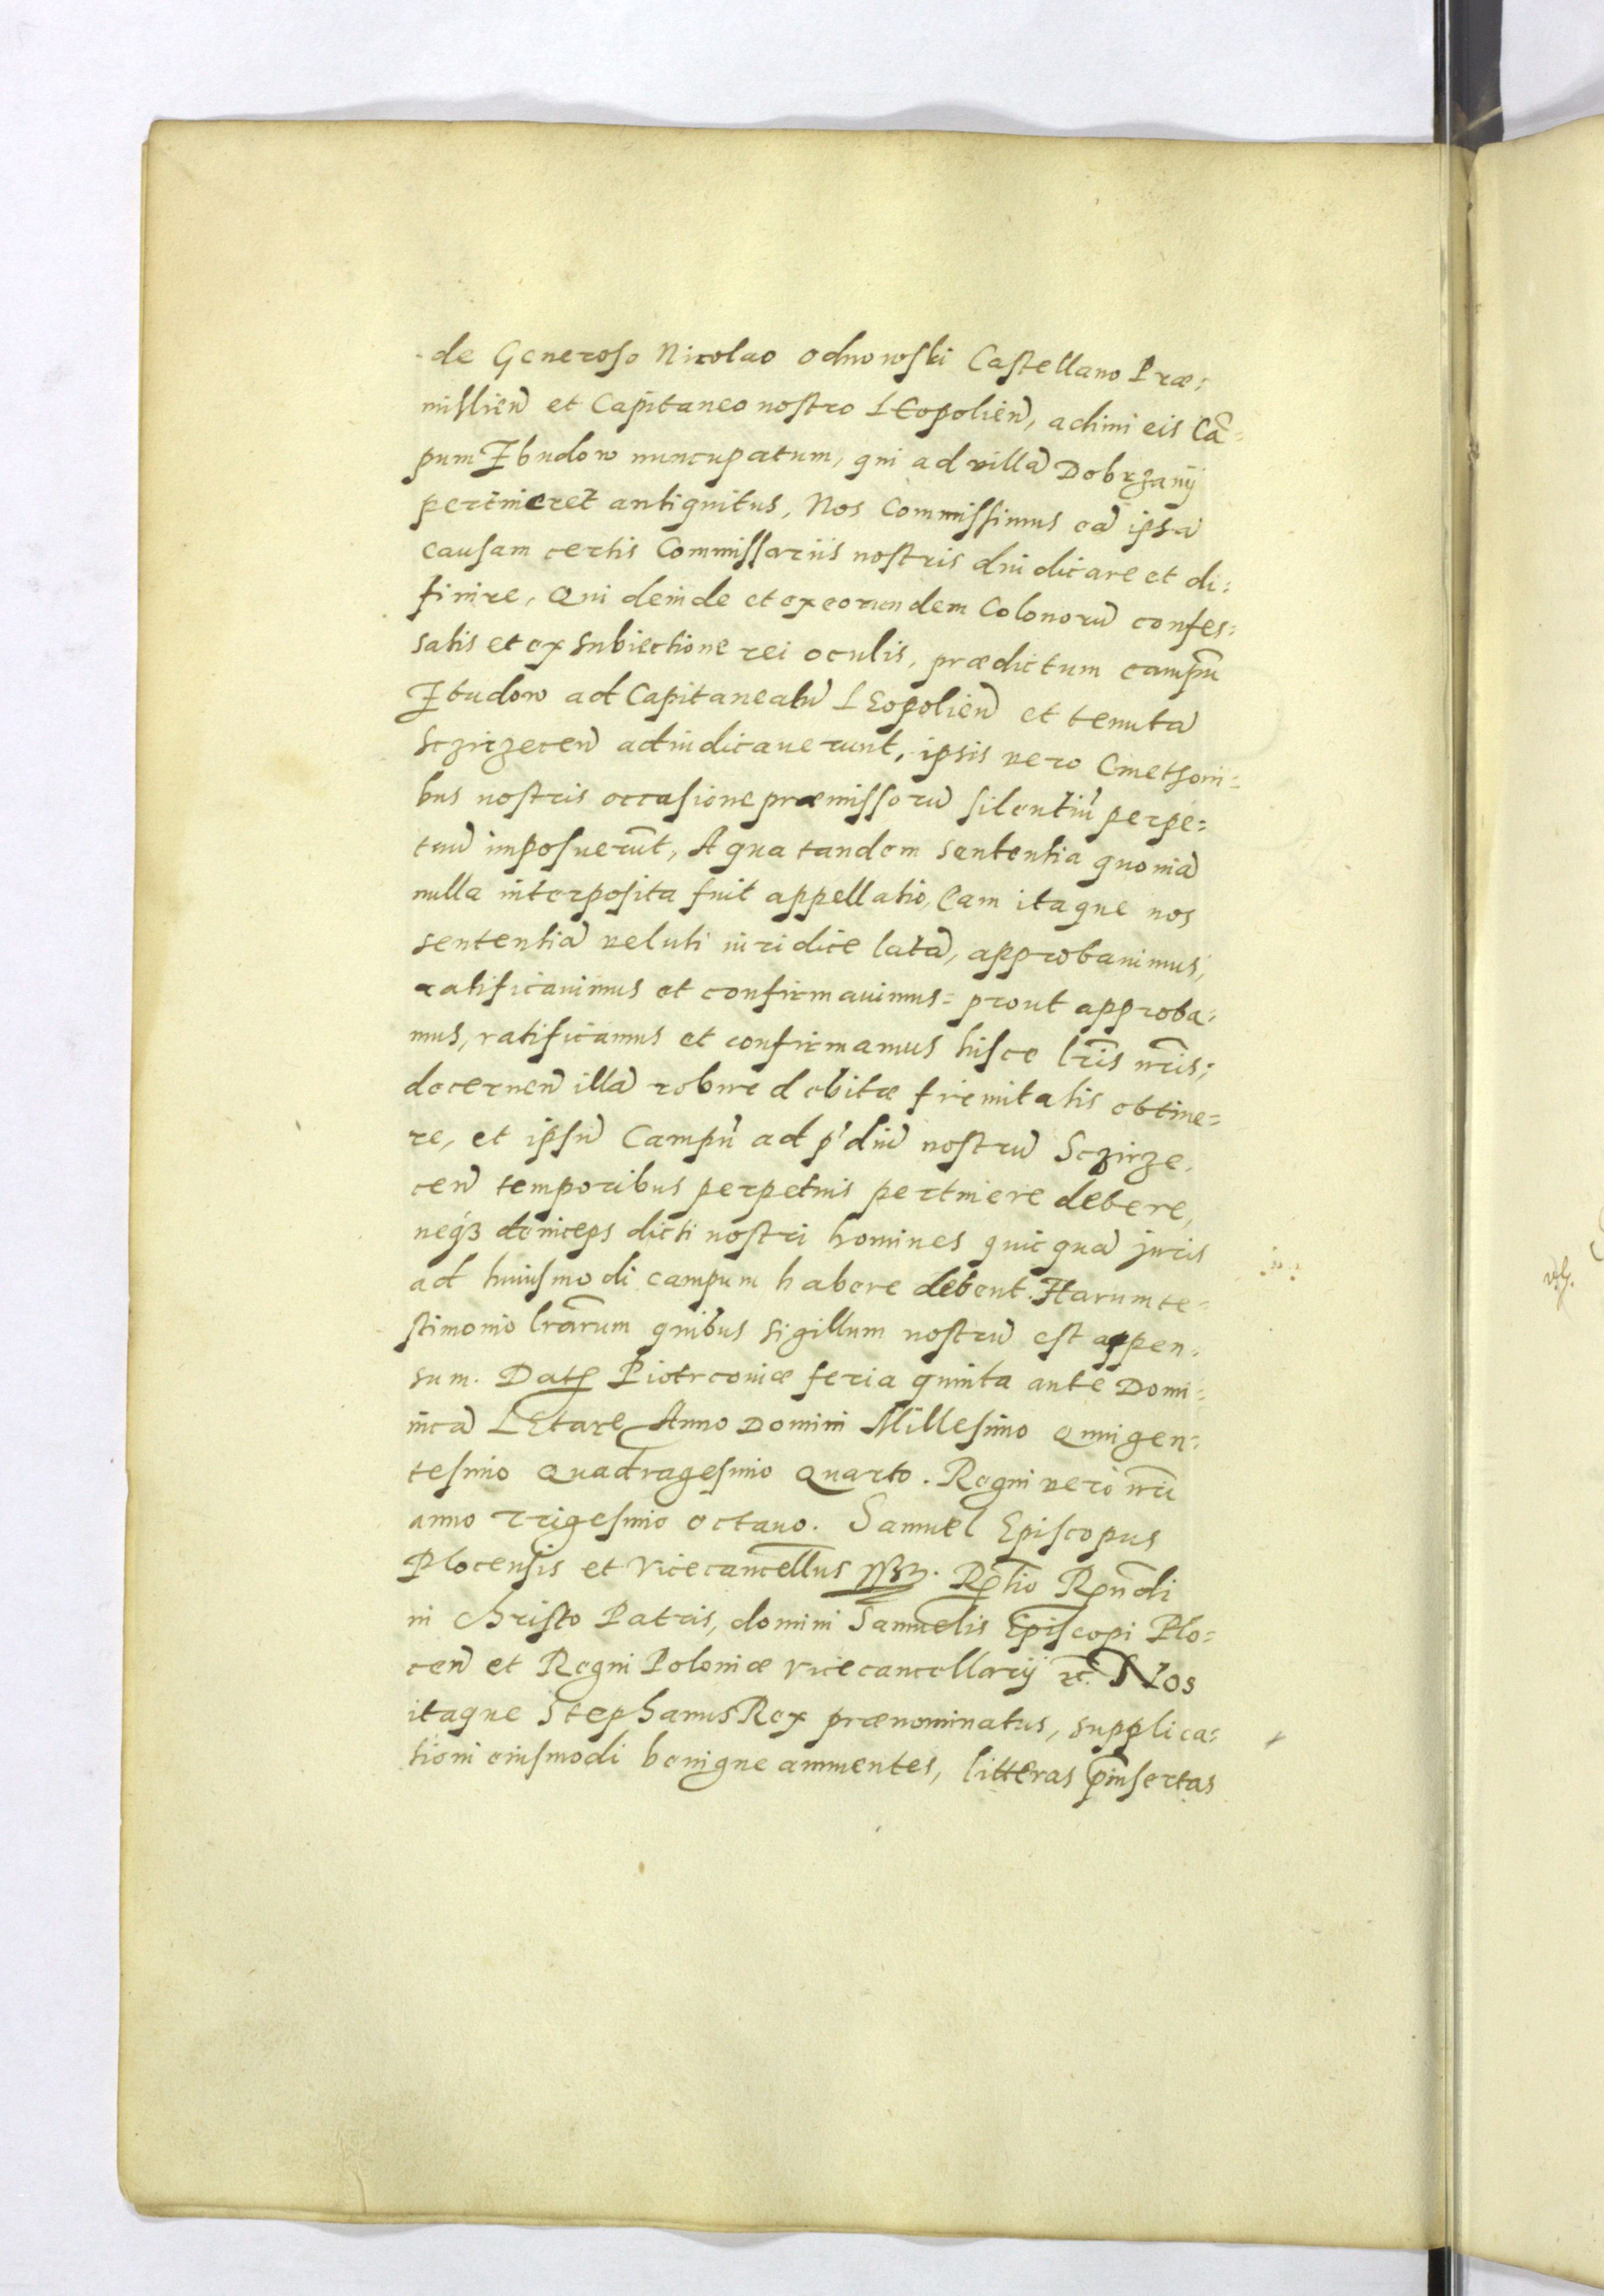 de Generoso Nicolao Odnowski Castellano Præ=
mislien̄ et Capitaneo nostro LEopolien̄, adimi eis Cā=
pum Zbudow nuncupatum, qui ad villā Dobrzanÿ
pertineret antiquitus, Nos Commissimus eā ipsā
causam certis Commissariis nostris diiudicare et di=
finire, Qui deinde et ex eorundem Colonorū confes=
satis et ex subiectione rei oculis, prædictum campū
Zbudow ad Capitaneatū LEopolien̄ et tenutā
Sczirzecen̄ adiudicauerunt, ipsis vero Cmethoni=
bus nostris occasione præmissorū silentiū perpe=
tuū imposuerūt, A qua tandem sententia quoniā
nulla interposita fuit appellatio, Eam itaque nos
sententiā veluti iuridice latā, approbauimus,
ratificauimus et confirmauimus= prout approba=
mus, ratificamus et confirmamus hisce lr̄is nr̄is;
decernen̄ illā robur debitæ firmitatis obtine=
re, et ipsū Campū ad p'diū nostrū Sczirze=
cen̄ temporibus perpetuis pertinere debere,
neqȝ deinceps dicti nostri homines quicquā juris
ad huiusmodi campum habere debent. Harum te=
stimonio lr̄arum quibus sigillum nostrū est appen=
sum. Datꝭ Piotrconiæ feria quinta ante Domi=
nicā LEtare Anno Domini Millesimo Quingen=
tesimo Quadragesimo Quarto. Regni vero nr̄i
anno Trigesimo octauo. Samuel Episcopus
Plocensis et Vicecancellus sst. Rꝑtio Rꝑn̄di
in Christo Patris, domini Samuelis Episcopi Plo=
cen̄ et Regni Poloniæ vicecancellarÿ &c. Nos
itaque Stephanus Rex prænominatus, supplica=
tioni eiusmodi benigne annuentes, litteras p̄insertas